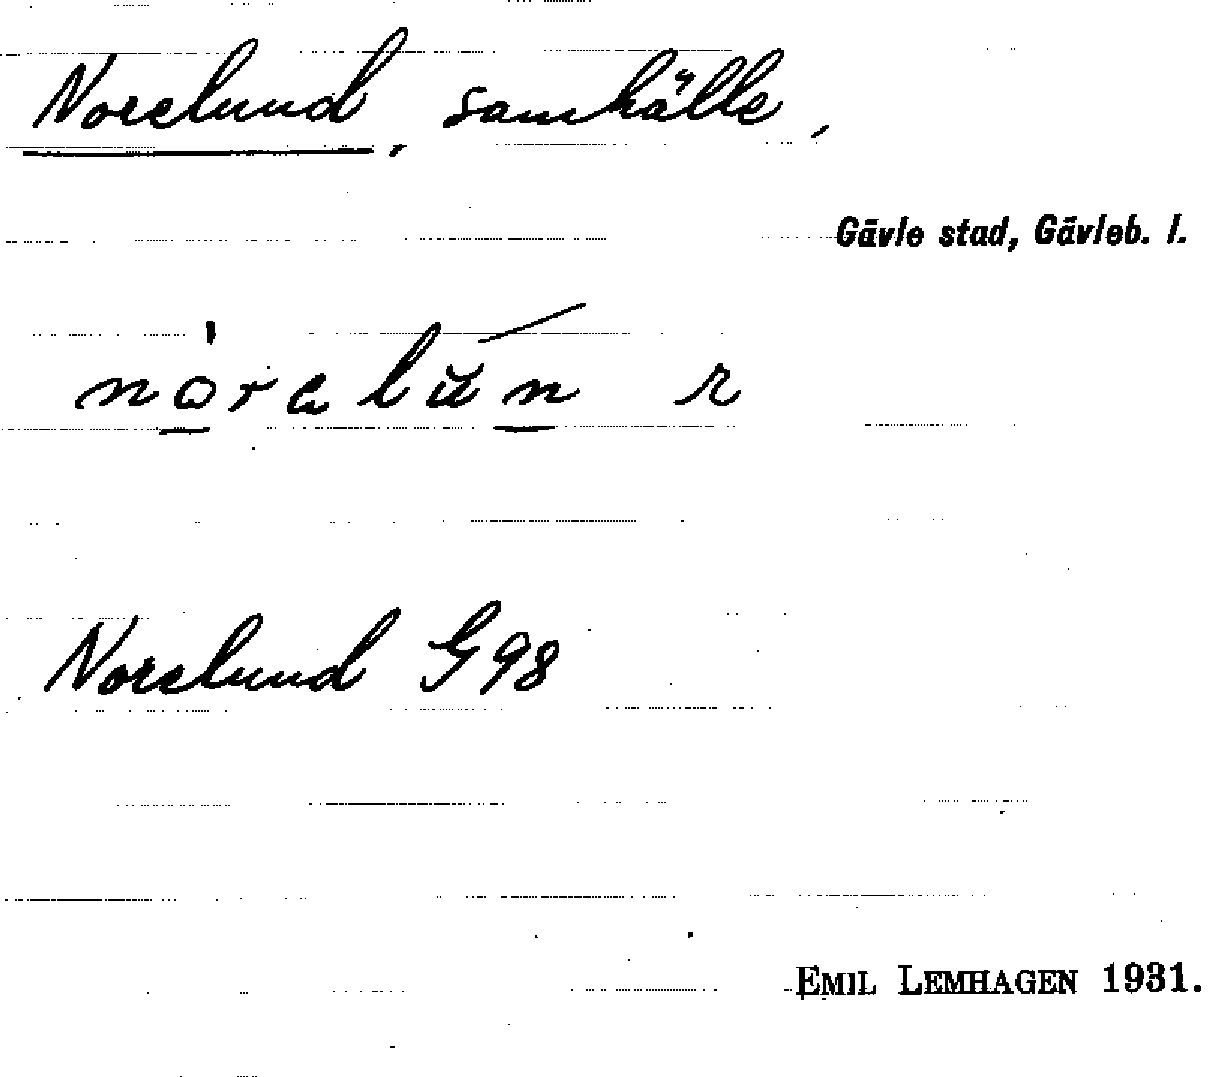 Norelund, samhälle,
Gävle stad, Gävleb. l.
Norelund G 98
EMIL LEMHAGEN 1931.